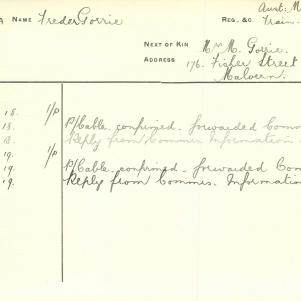 Aust. M
A NAME Freder Gorrie REG. &C. Train.
NEXT OF KIN Mrs M. Gorrie.
ADDRESS 176. Fisher Street
Malvern.
18. 1/P
18. P/Cable. confirmed - forwarded Comm
18. Reply from Commns Information
19. 1/P
19. P/Cable. confirmed - forwarded Com
19. Reply from Commns. Information